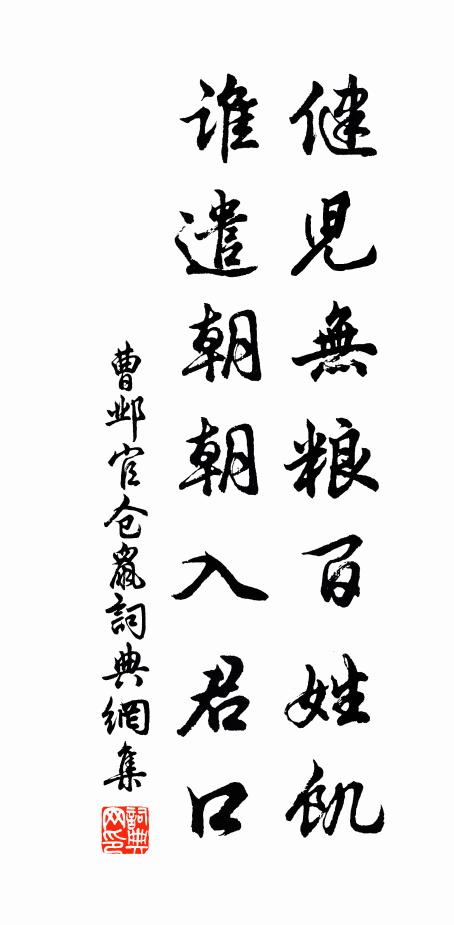 健児無粮百姓飢
谁遣朝朝入君口
曹邺官仓鼠詞典網集
詞典网印